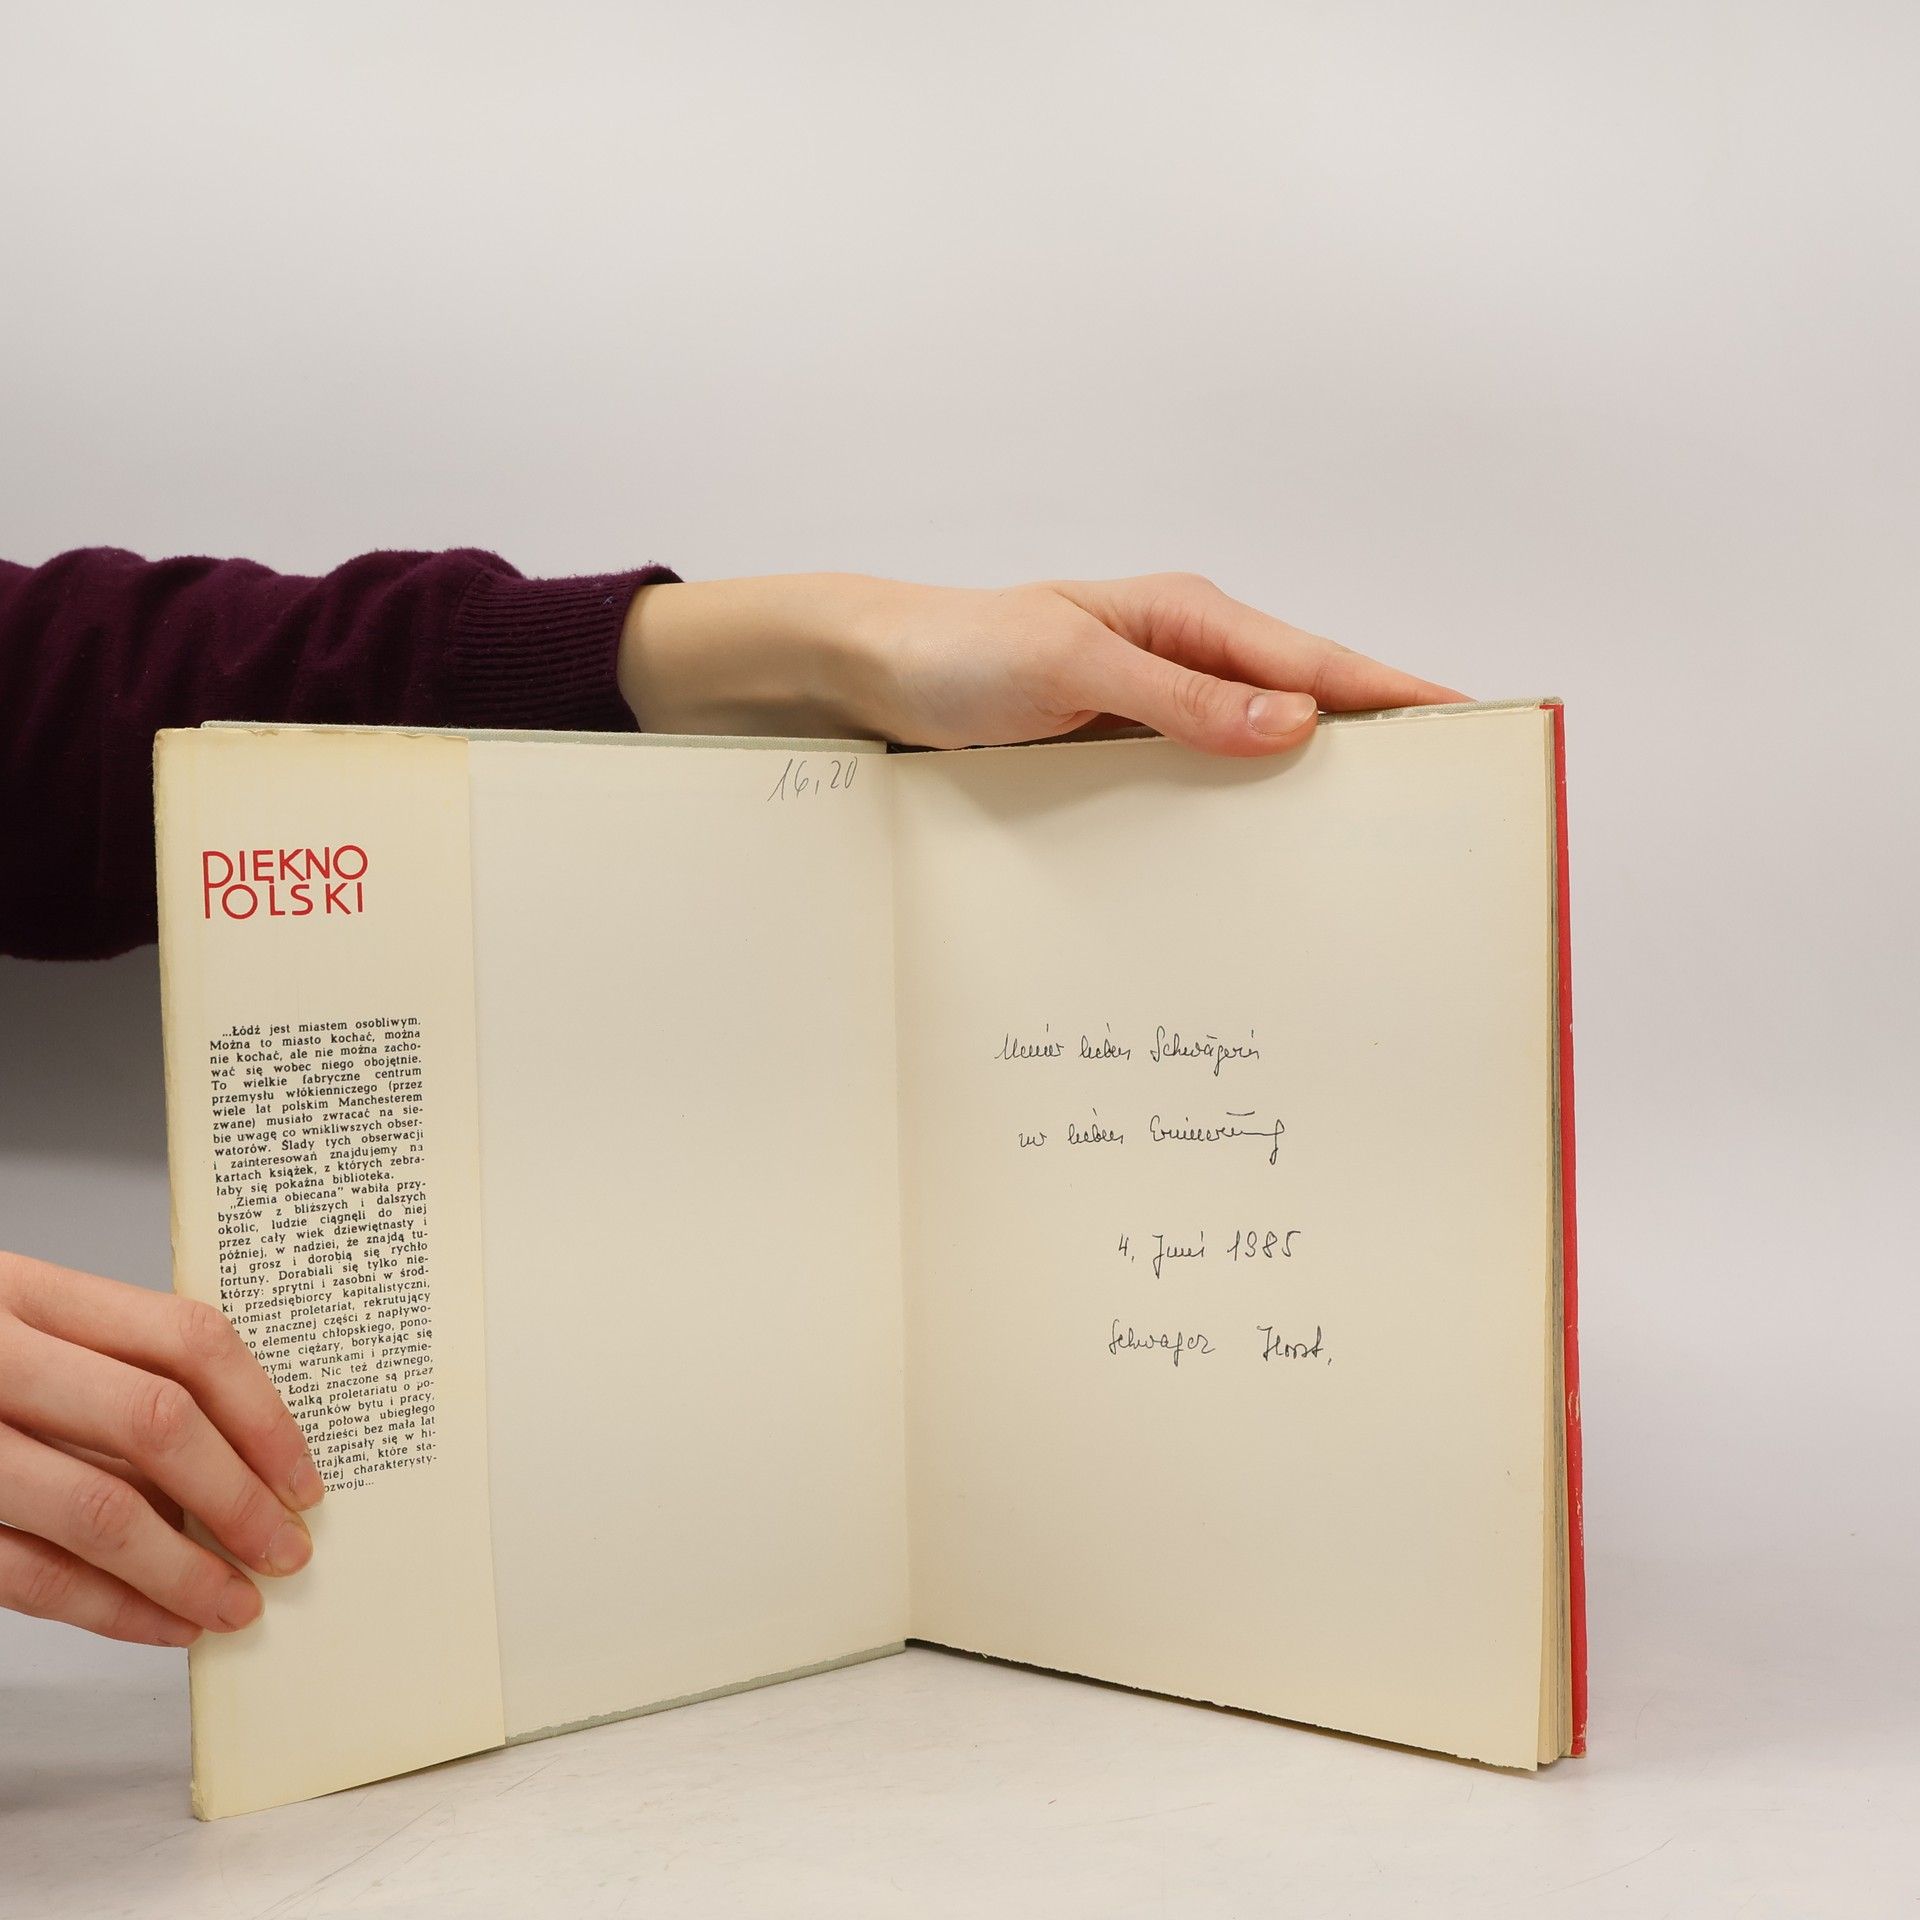 PIĘKNO
POLSKI
...Łódź jest miastem osobliwym.
Można to miasto kochać, można
nie kochać, ale nie można zacho-
wać się wobec niego obojętnie.
To wielkie fabryczne centrum
przemysłu włókienniczego (przez
wiele lat polskim Manchesterem
zwane) musiało zwracać na sie-
bie uwagę co wnikliwszych obser-
watorów. Ślady tych obserwacji
i zainteresowań znajdujemy na
kartach książek, z których zebra-
łaby się pokaźna biblioteka.
„Ziemia obiecana" wabiła przy-
byszów z bliższych i dalszych
okolic, ludzie ciągnęli do niej
przez cały wiek dziewiętnasty i
później, w nadziei, że znajdą tu-
taj grosz i dorobią się rychło
fortuny. Dorabiali się tylko nie-
którzy: sprytni i zasobni w środ-
ki przedsiębiorcy kapitalistyczni,
atomiast proletariat, rekrutujący
w znacznej części z napływo-
go elementu chłopskiego, pono-
łówne ciężary, borykając się
nymi warunkami i przymie-
łodem. Nic też dziwnego,
Łodzi znaczone są przez
walką proletariatu o po-
warunków bytu i pracy,
uga połowa ubiegłego
erdzieści bez mała lat
ku zapisały się w hi-
trajkami, które sta-
dziej charakterysty-
ozwoju...
16,20
Meiner lieben Schwägerin
zur lieben Erinnerung
4. Juni 1985
Schwager Horst.